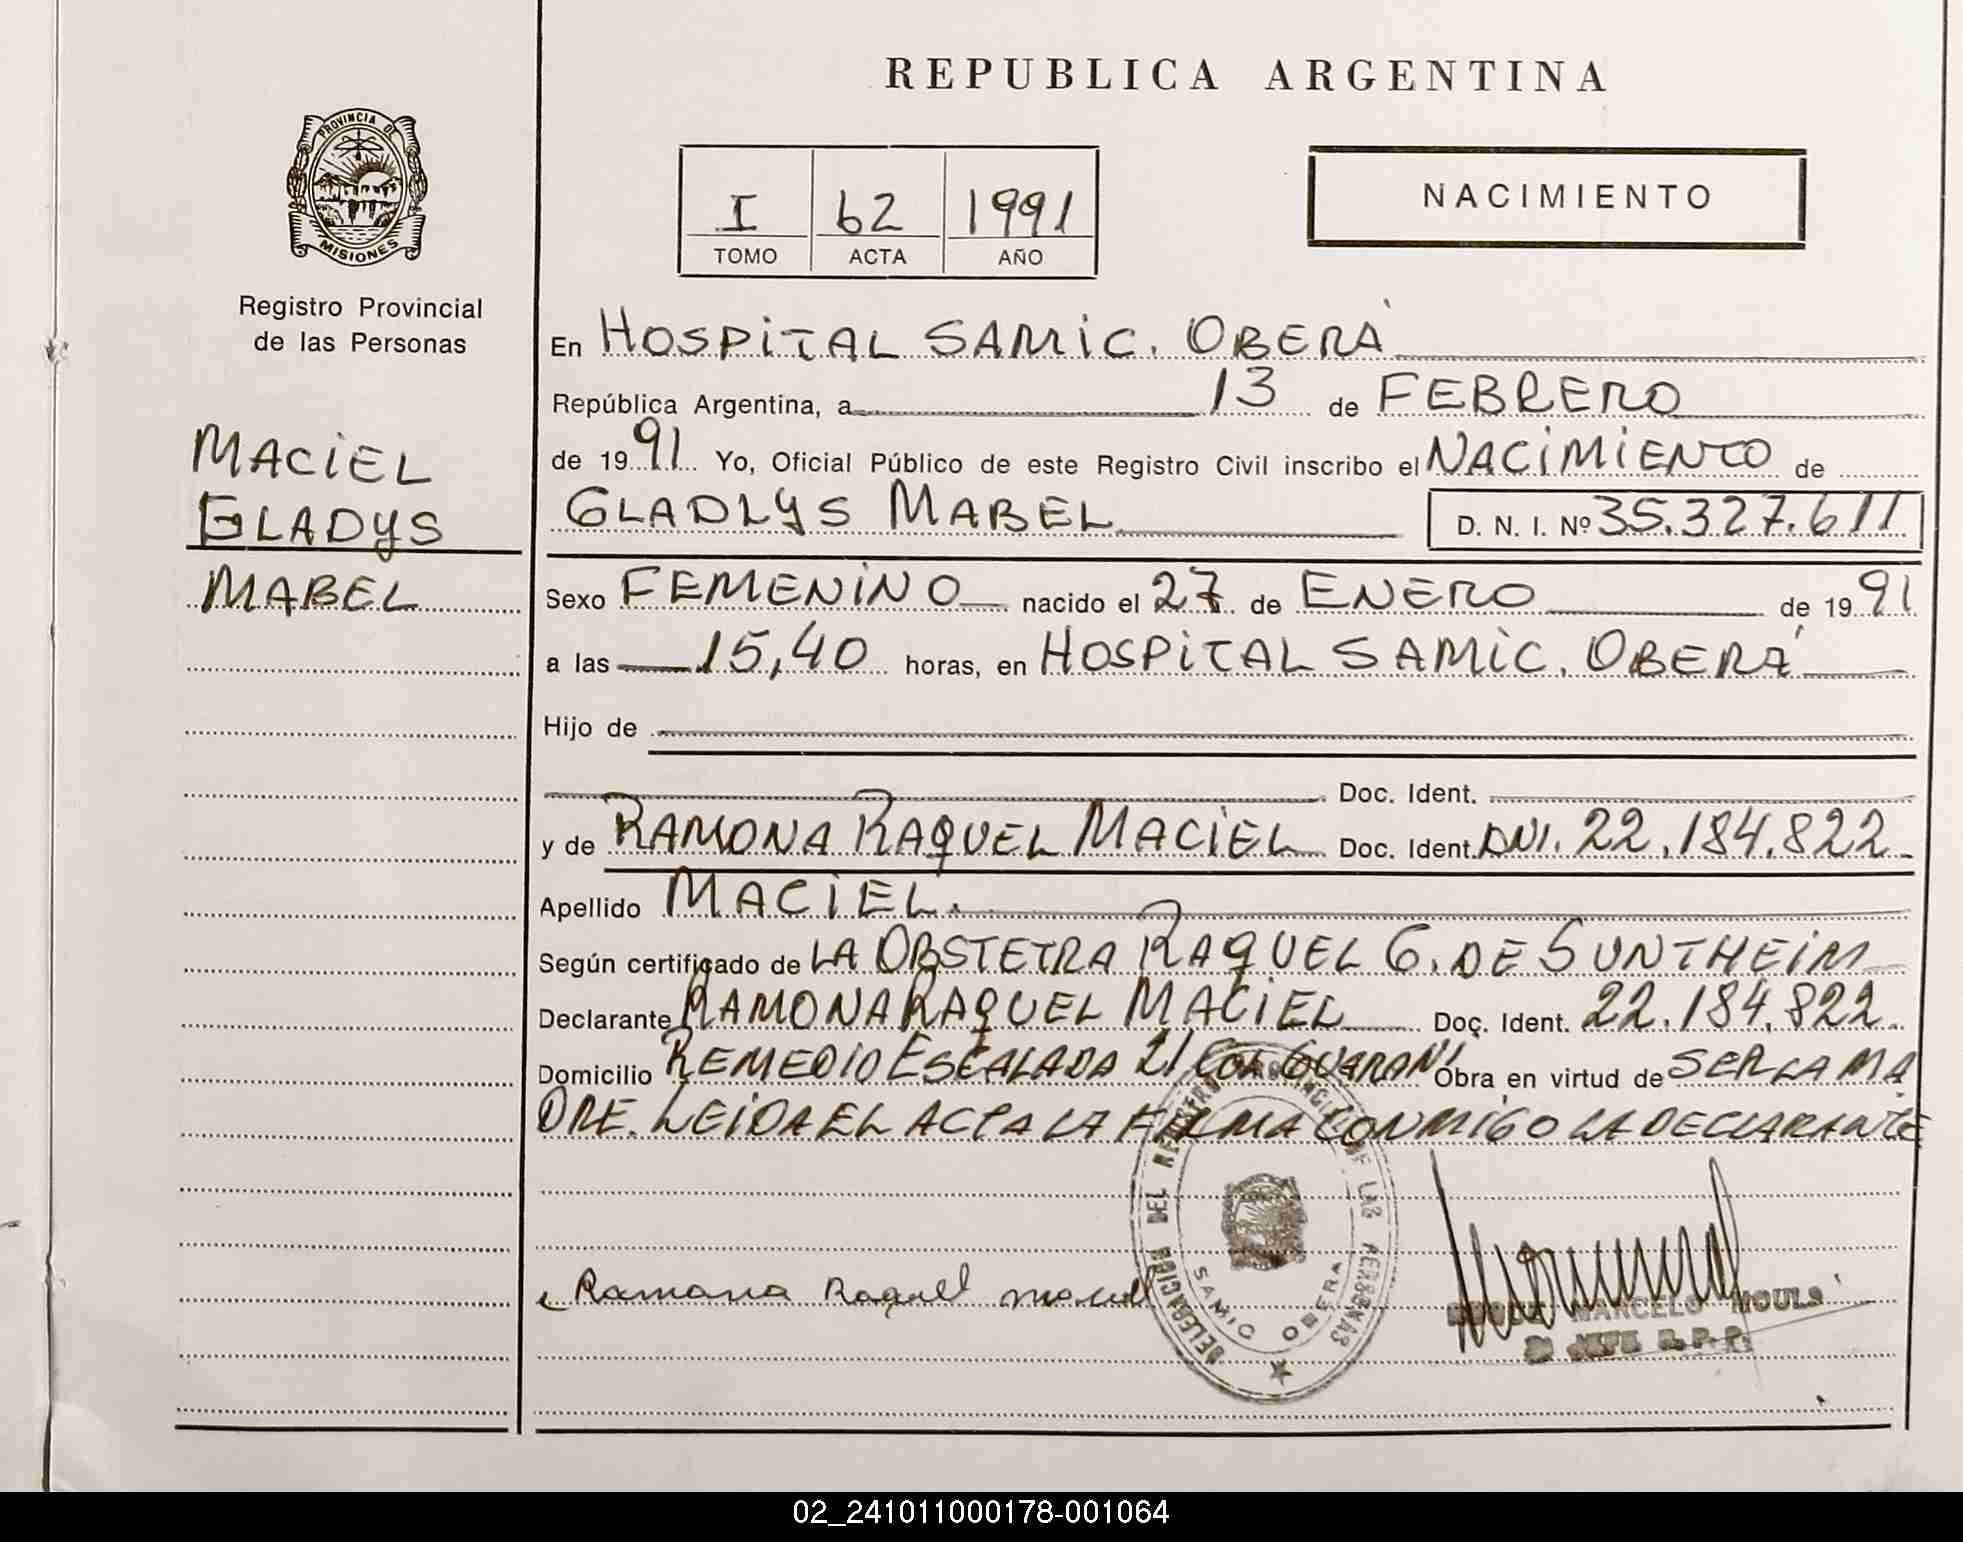 REPUBLICA ARGENTINA
PROVINCIA DE
MISIONES
Registro Provincial
de las Personas
I 62 1991
TOMO ACTA AÑO
NACIMIENTO
MACIEL
GLADYS
MABEL
En HOSPITAL SAMIC. OBERÁ
República Argentina, a 13 de FEBRERO
de 1991 Yo, Oficial Público de este Registro Civil inscribo el NACIMIENTO de
GLADYS MABEL D. N. I. Nº 35.327.611
Sexo FEMENINO nacido el 27 de ENERO de 1991
a las 15,40 horas, en HOSPITAL SAMIC. OBERÁ
Hijo de
Doc. Ident.
y de RAMONA RAQUEL MACIEL Doc. Ident. DNI. 22.184.822
Apellido MACIEL.
Según certificado de LA OBSTETRA RAQUEL G. DE SUNTHEIM
Declarante RAMONA RAQUEL MACIEL Doc. Ident. 22.184.822.
Domicilio REMEDIO ESCALADA 21 COL GUARANÍ Obra en virtud de SER LA MA
DRE. LEIDA EL ACTA LA FIRMA CONMIGO LA DECLARANTE
DELEGACION DEL REGISTRO PROVINCIAL DE LAS PERSONAS
SAMIC OBERA
Ramona Raquel Maciel
MARCELO MOULS
JEFE R.P.P.
02_241011000178-001064